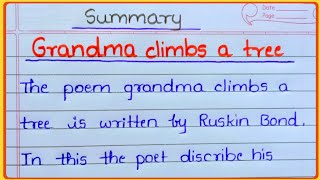 Summary
Date
Page
Grandma climbs a tree
The poem grandma climbs a
tree is written by Ruskin Bond.
In this the poet discribe his